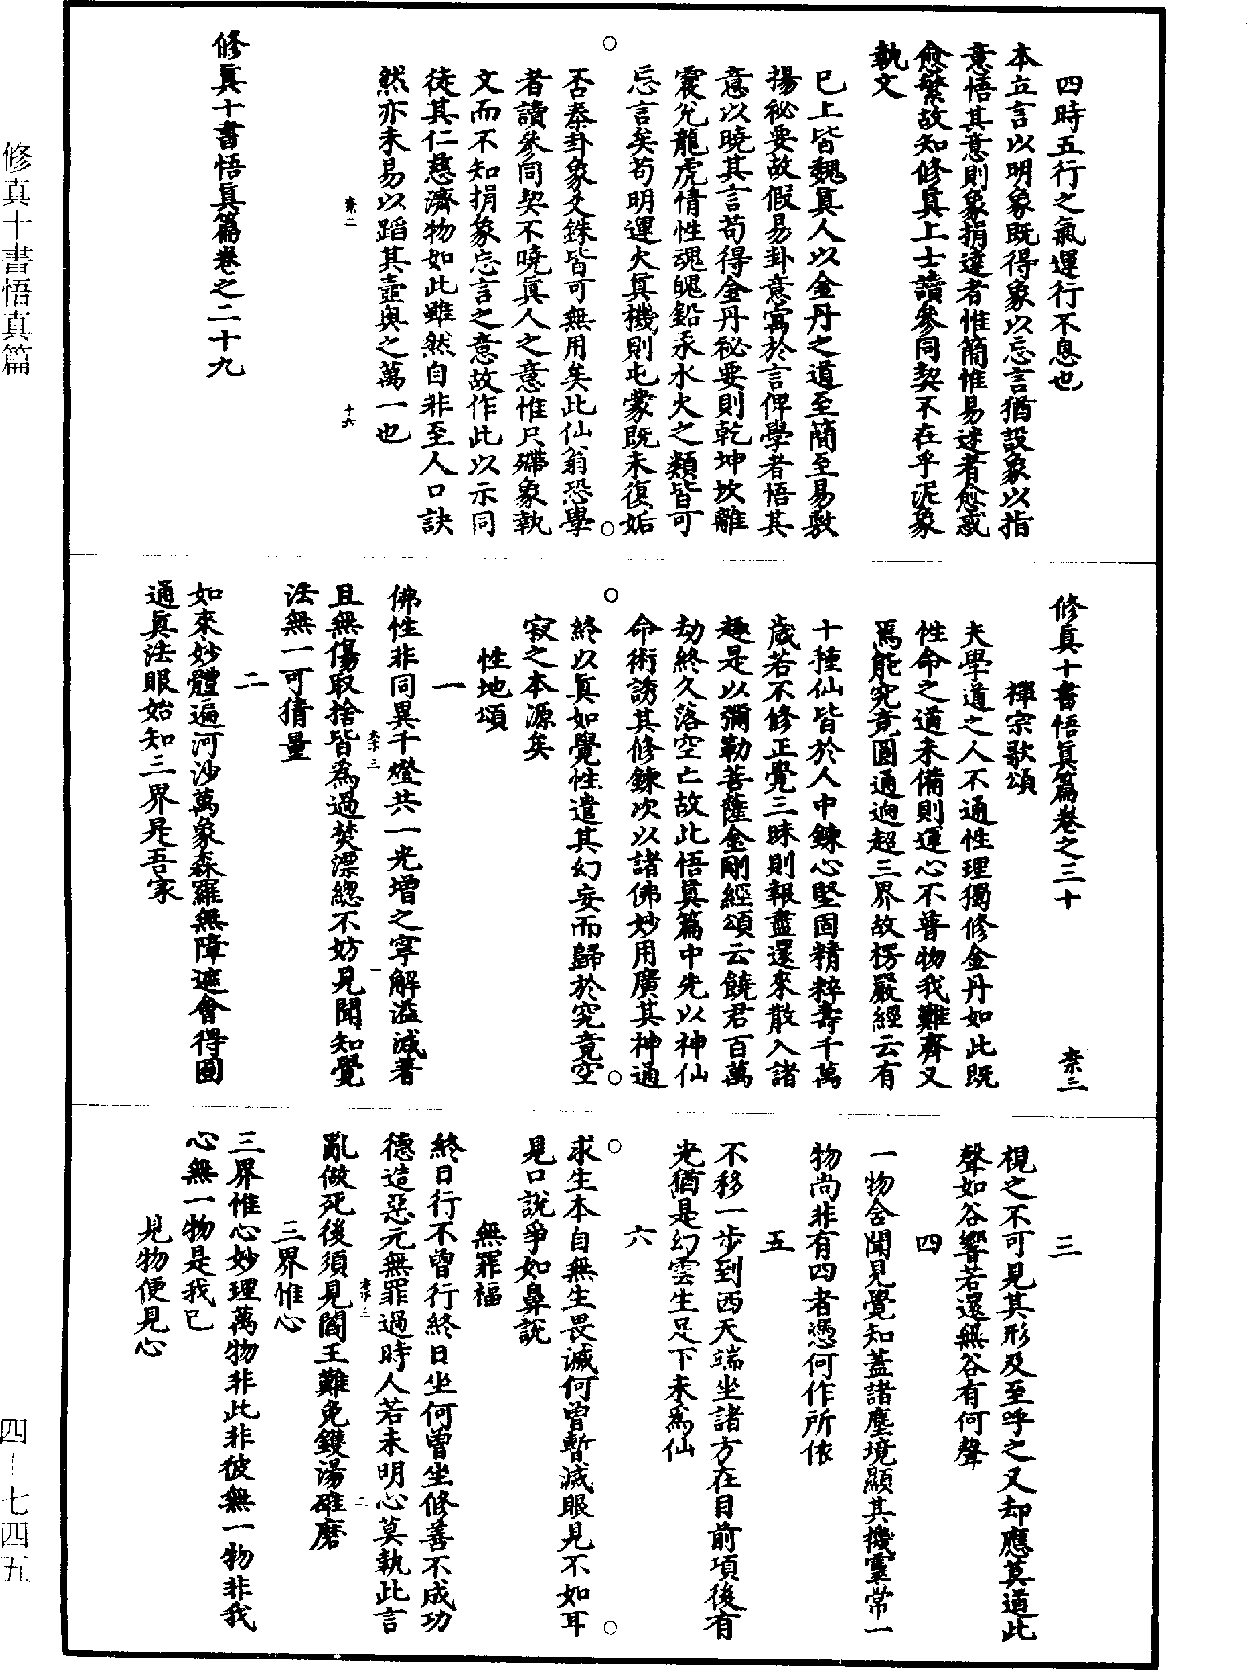 四時五行之氣運行不息也
本立言以明象既得象以忘言猶設象以指
意悟其意則象捐達者惟簡惟易迷者愈惑
愈繁故知修真上士讀參同契不在乎泥象
執文
巳上皆魏真人以金丹之道至簡至易敷
揚祕要故假易卦意寓於言俾學者悟其
意以曉其言苟得金丹祕要則乾坤坎離
震兊龍虎情性魂魄鉛汞水火之類皆可
忘言矣苟明運火真機則屯蒙既未復姤
否泰卦象爻銖皆可無用矣此仙翁恐學
者讀參同契不曉真人之意惟只殢象執
文而不知捐象忘言之意故作此以示同
徒其仁慈濟物如此雖然自非至人口訣
然亦未易以蹈其壺奥之萬一也
柰二
十六
修真十書悟真篇卷之二十九
修真十書悟真篇卷之三十
柰三
禪宗歌頌
夫學道之人不通性理獨修金丹如此既
性命之道未備則運心不普物我難齊又
焉能究竟圓通逈超三界故楞嚴經云有
十種仙皆於人中鍊心堅固精粹壽千萬
歲若不修正覺三昧則報盡還來散入諸
趣是以彌勒菩薩金剛經頌云饒君百萬
劫終久落空亡故此悟真篇中先以神仙
命術誘其修鍊次以諸佛妙用廣其神通
終以真如覺性遣其幻妄而歸於究竟空
寂之本源矣
性地頌
一
佛性非同異千燈共一光增之寧解溢減著
且無傷取捨皆爲過焚漂緫不妨見聞知覺
法無一可猜量
二
如來妙體遍河沙萬象森羅無障遮會得圓
通真法眼始知三界是吾家
三
視之不可見其形及至呼之又却應莫道此
聲如谷響若還無谷有何聲
四
一物含聞見覺知蓋諸塵境顯其機靈常一
物尚非有四者憑何作所依
五
不移一步到西天端坐諸方在目前項後有
光猶是幻雲生足下未爲仙
六
求生本自無生畏滅何曾暫滅眼見不如耳
見口說爭如鼻說
無罪福
終日行不曾行終日坐何曾坐修善不成功
德造惡元無罪過時人若未明心莫執此言
亂做死後須見閻王難免鑊湯碓磨
三界惟心
三界惟心妙理萬物非此非彼無一物非我
心無一物是我己
見物便見心
修真十書悟真篇
四-七四五